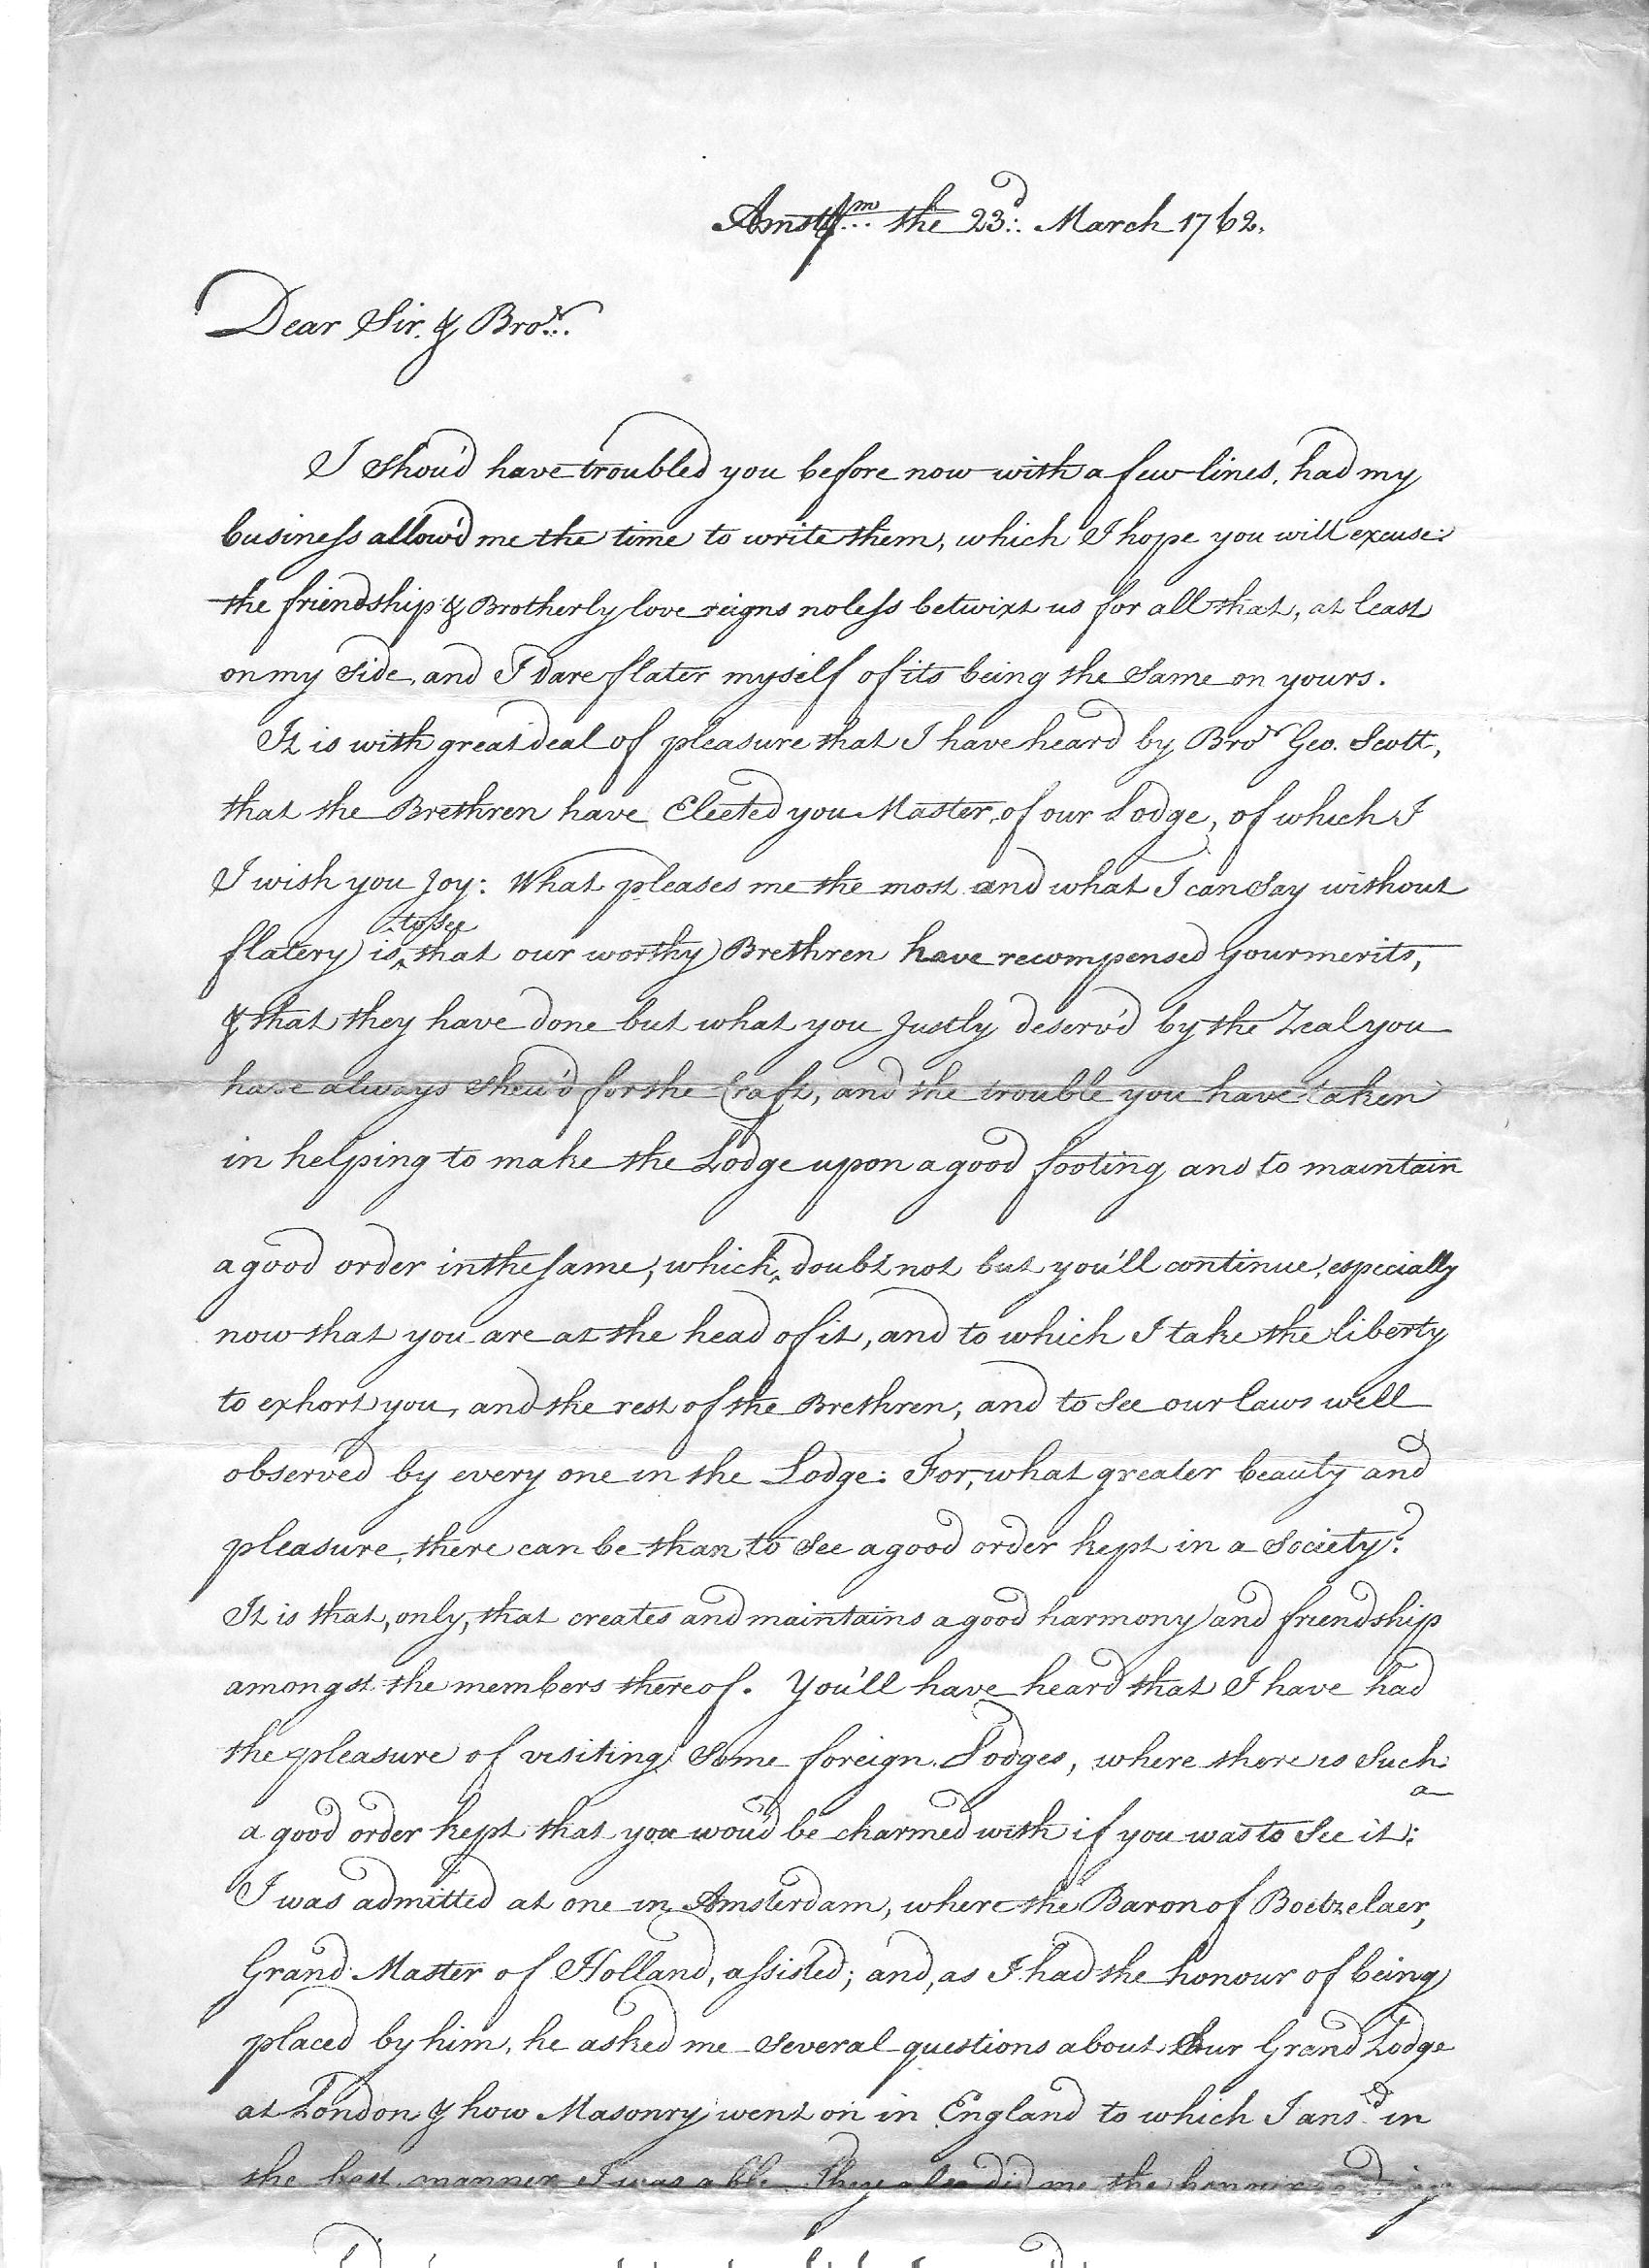 Amstm the 23d: March 1762.
Dear Sir. & Bror.
I shou'd have troubled you before now with a few lines, had my
business allow'd me the time to write them, which I hope you will excuse:
the friendship & Brotherly love reigns no less betwixt us for all that, at least
on my Side, and I Dare flater myself of its being the Same on yours.
It is with great deal of pleasure that I have heard by Bror Geo. Scott,
that the Brethren have Elected you Master, of our Lodge, of which I
I wish you Joy: What pleases me the most and what I can Say without
to see
flatery is ^ that our worthy Brethren have recompensed your merits,
& that they have done but what you Justly deserv'd by the Zeal you
have always shew'd for the Craft, and the trouble you have taken
in helping to make the Lodge upon a good footing and to maintain
a good order in the same, which ^ doubt not but you'll continue, especially
now that you are at the head of it, and to which I take the liberty
to exhort you, and the rest of the Brethren, and to See our laws well
observed by every one in the Lodge: For, what greater beauty and
pleasure, there can be than to See a good order kept in a Society?
It is that, only, that creates and maintains a good harmony and friendship
amongst the members thereof. You'll have heard that I have had
the pleasure of visiting Some foreign Lodges, where there is Such
a
a good order kept that you wou'd be charmed with if you was to See it:
I was admitted at one in Amsterdam, where the Baron of Boetzelaer,
Grand Master of Holland, assisted; and, as I had the honour of being
placed by him, he asked me Several questions about Our Grand Lodge
at London & how Masonry went on in England to which I ansd in
the best manner I was able. They also did me the honour